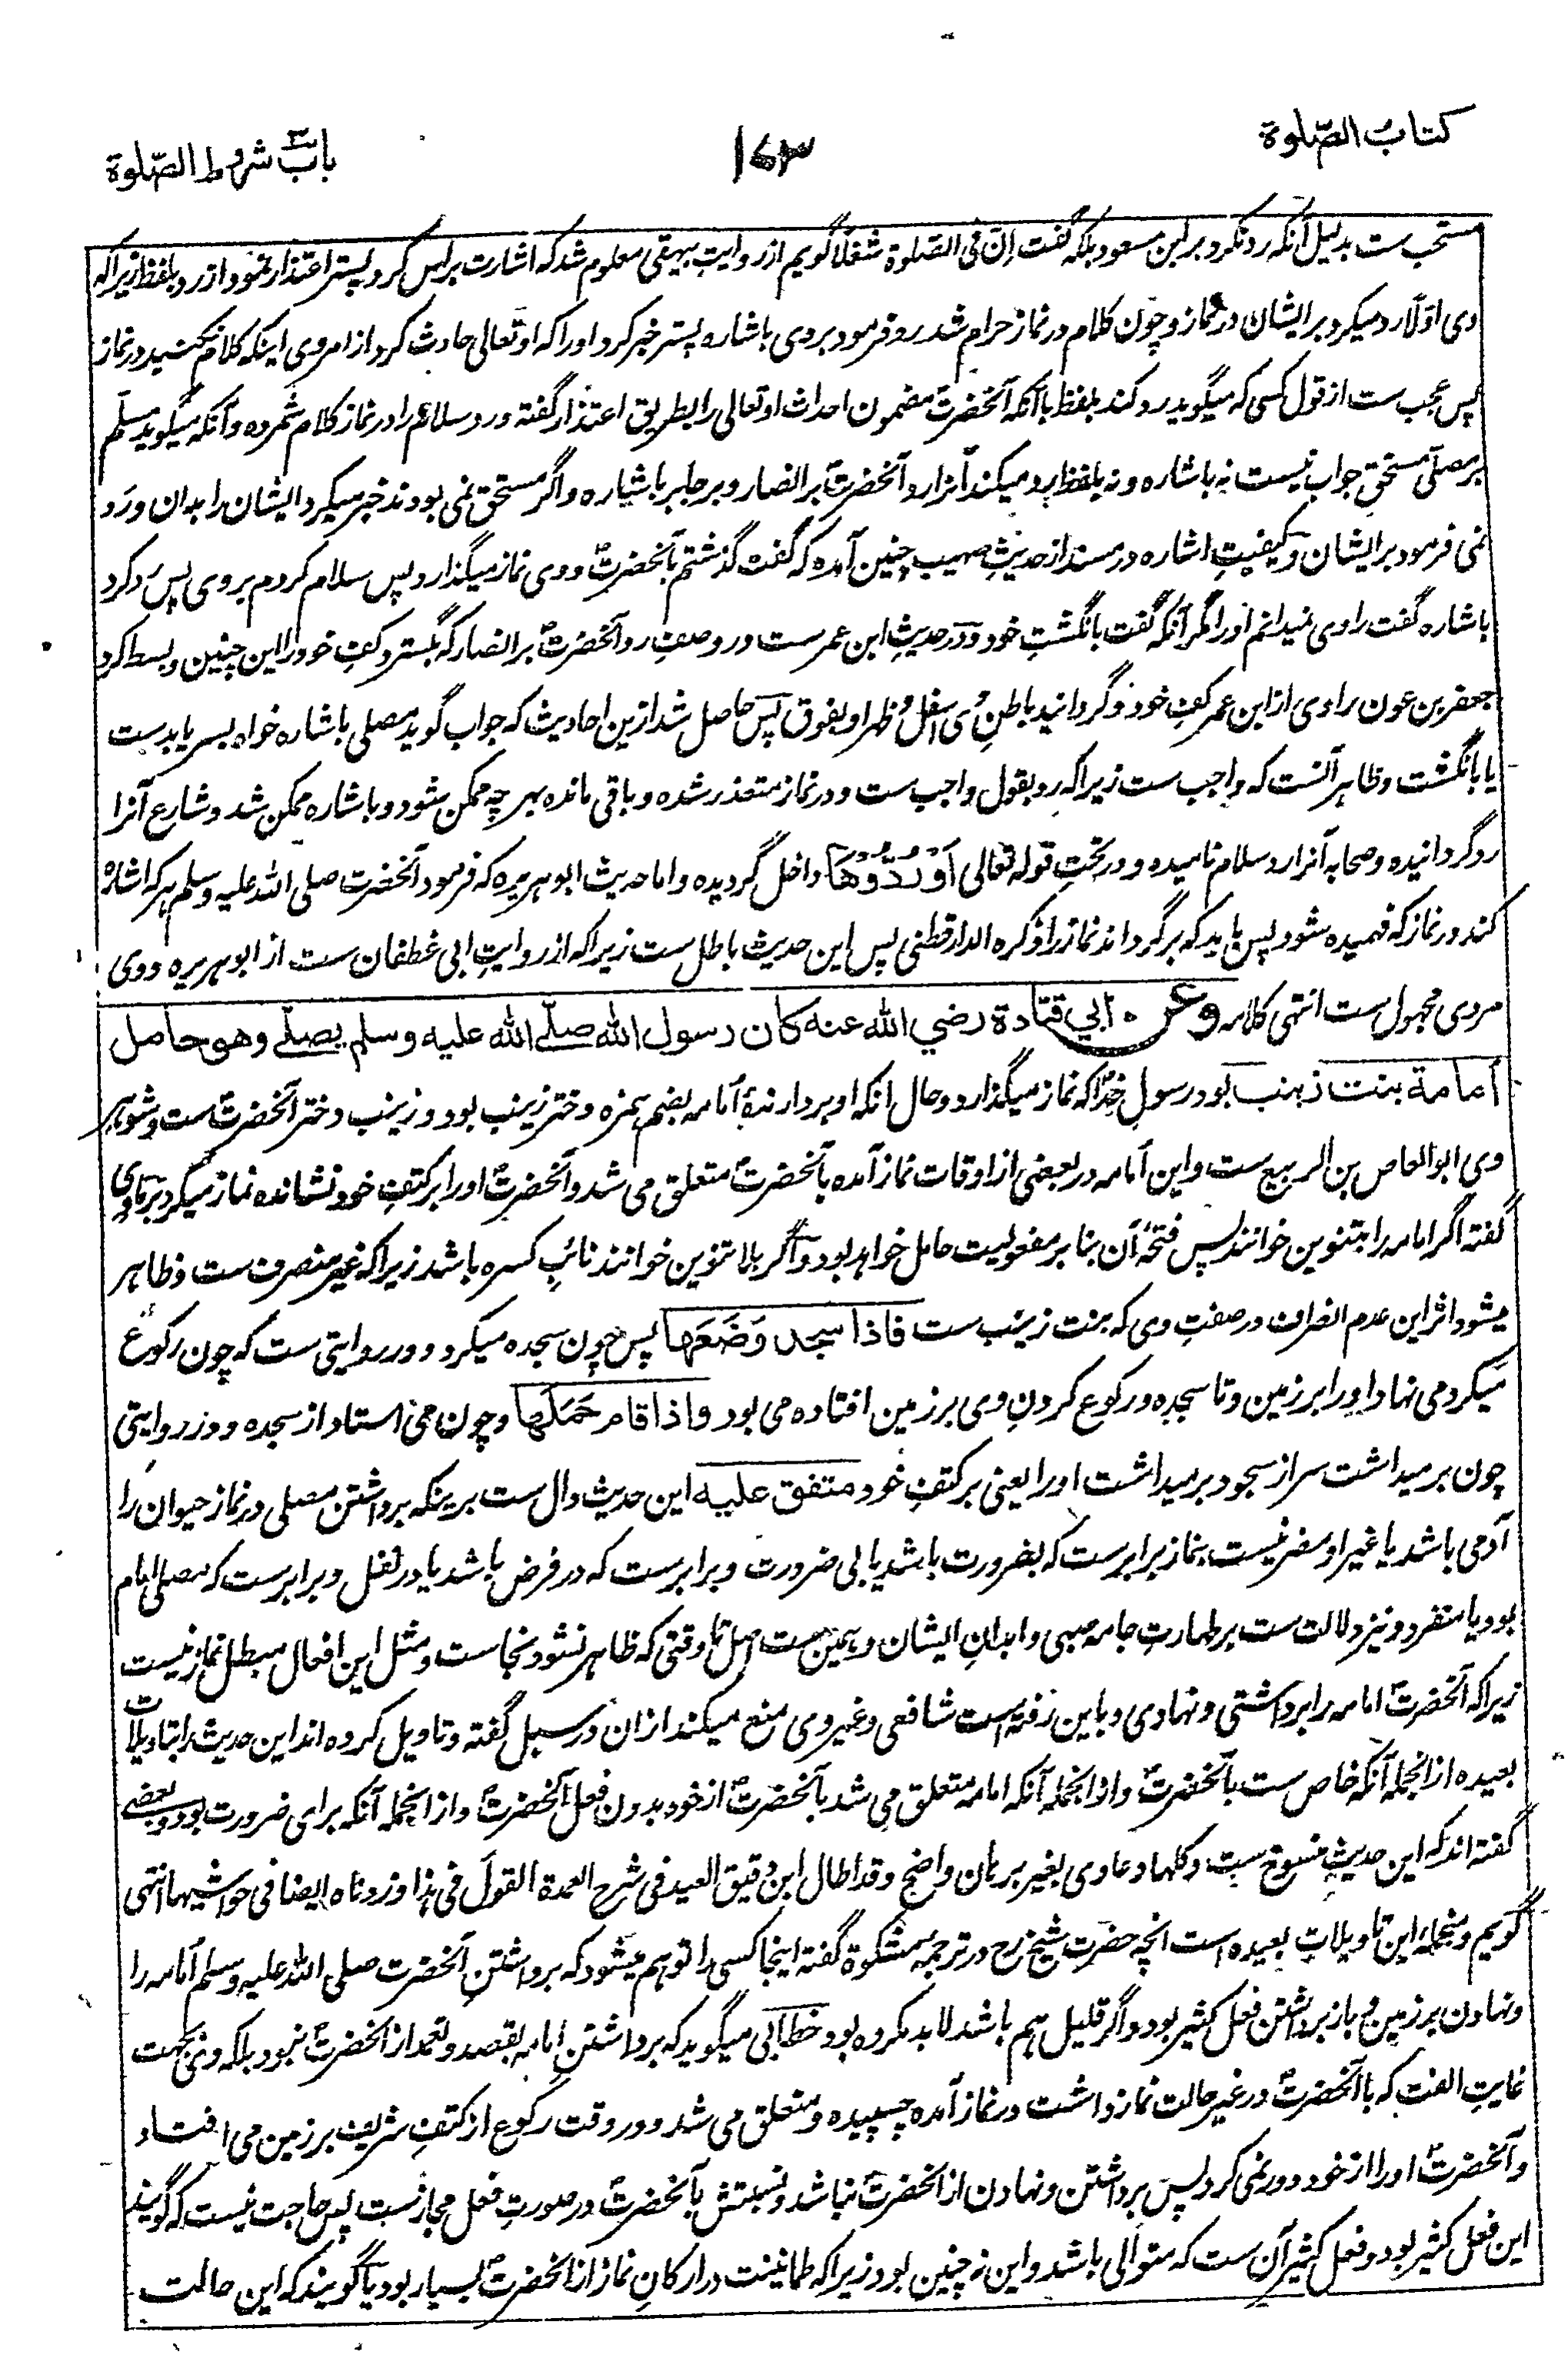 کتابُ الصّلوة
۱۶۳
بابٌ شروط الصّلوة
مستحب ست بدلیل آنکه رد نکرد بر ابن مسعود بلکه گفت اِنَّ فی الصّلوة شغلاً گویم از روایت بیهقی معلوم شد که اشارت براس کرد پستر اعتذار نمود از رد بلفظ زیرا که
وی اوّلاً رد میکرد بر ایشان در نماز و چون کلام در نماز حرام شد رد فرمود بر وی باشاره پستر خبر کرد او را که او تعالی حادث کرد از امر وی اینکه کلام نکنید در نماز
پس عجب ست از قول کسی که میگوید رد کند بلفظ باآنکه آنحضرتؐ مضمون احداث او تعالی را بطریق اعتذار گفته و رد سلام را در نماز کلام شمرده و آنکه میگوید مسلّم
بر مصلّی مستحق جواب نیست نه باشاره و نه بلفظ رد میکند آنرا رد آنحضرتؐ بر انصار و بر جابر باشاره و اگر مستحق نمی بودند خبر میکرد ایشان را بدان و رد
نمی فرمود بر ایشان و کیفیتِ اشاره در مسند از حدیثِ صهیب چنین آمده که گفت گذشتم بآنحضرتؐ و وی نماز میگذارد پس سلام کردم بر وی پس رد کرد
باشاره گفت راوی نمیدانم او را مگر آنکه گفت بانگشتِ خود و در حدیثِ ابن عمر ست در وصفِ رد آنحضرتؐ بر انصار که بگسترد کفِ خود را این چنین و بسط کرد
جعفر بن عون راوی از ابن عمر کفِ خود و گردانید باطنِ وی اسفل و ظهر او بفوق پس حاصل شد ازین احادیث که جواب گوید مصلی باشاره خواه بسر یا بدست
یا بانگشت و ظاهر آنست که واجب ست زیرا که رد بقول واجب ست و در نماز متعذر شده و باقی مانده بهر چه ممکن شود و باشاره ممکن شد و شارع آنرا
رد گردانیده و صحابه آنرا رد سلام نامیده و در تحتِ قوله تعالی اَوْ رُدُّوْهَا داخل گردیده و اما حدیث ابو هریره که فرمود آنحضرت صلی الله علیه وسلم هر که اشاره
کند در نماز که فهمیده شود پس باید که برگرداند نماز را ذکره الدارقطنی پس این حدیث باطل ست زیرا که از روایتِ ابی غطفان ست از ابو هریره و وی
مردی مجهول ست انتهی کلامه وعن ابي قتادة رضي الله عنه كان رسول الله صلّے الله عليه وسلم يصلّے وهو حامل
اُمامة بنت زينب بود رسول خداؐ که نماز میگذارد و حال آنکه او بردارنده اُمامه بضم همزه دختر زینب بود و زینب دختر آنحضرتؐ ست و شوهر
وی ابو العاص بن الربیع ست و این اُمامه در بعضی از اوقات نماز آمده بآنحضرتؐ متعلق می شد و آنحضرتؐ او را بر کتفِ خود نشانده نماز میکرد
گفته اگر امامه را بتنوین خوانند پس فتحهٔ آن بنا بر مفعولیت حامل خواهد بود و اگر بلا تنوین خوانند نائبِ کسره باشد زیرا که غیر منصرف ست و ظاهر
میشود اثر این عدم انصراف در صفتِ وی که بنت زینب ست فاذا سجد وَضَعَها پس چون سجده میکرد و در روایتی ست که چون رکوع
میکرد می نهاد او را بر زمین و تا سجده و رکوع کردنِ وی بر زمین افتاده می بود واذا قام حَمَلَها و چون می استاد از سجده و در روایتی
چون برمیداشت سر از سجود برمیداشت او را یعنی بر کتفِ خود متفق علیه این حدیث دال ست برینکه برداشتن مصلی در نماز حیوان را
آدمی باشد یا غیر او مضر نیست بنماز برابر ست که بضرورت باشد یا بی ضرورت و برابر ست که در فرض باشد یا در نفل و برابر ست که مصلی امام
بود یا منفرد و نیز دلالت ست بر طهارتِ جامه صبی و ابدانِ ایشان و همین ست اصل تا وقتی که ظاهر نشود نجاست و مثل این افعال مبطل نماز نیست
زیرا که آنحضرتؐ امامه را برداشتی و نهادی و باین رفته است شافعی و غیر وی منع میکند از ان در سبل گفته و تاویل کرده اند این حدیث را بتاویلات
بعیده از انجمله آنکه خاص ست بآنحضرتؐ و از انجمله آنکه امامه متعلق می شد بآنحضرتؐ از خود بدون فعل آنحضرتؐ و از انجمله آنکه برای ضرورت بود و بعضے
گفته اند که این حدیثِ منسوخ ست و کلها دعاوی بغیر برهان واضح و قد اطال ابن دقیق العید فی شرح العمدة القولَ فی هذا و زدناه ایضا فی حواشیها انتهی
گویم و منجمله این تاویلاتِ بعیده است آنچه حضرت شیخ رح در ترجمه مشکوة گفته اینجا کسی را توهم میشود که برداشتنِ آنحضرت صلی الله علیه وسلم اُمامه را
و نهادن بر زمین و باز برداشتن فعل کثیر بود و اگر قلیل هم باشد لابد مکروه بود خطابی میگوید که برداشتنِ امامه بقصد و تعمد از آنحضرتؐ نبود بلکه وی بجهت
غایتِ الفت که با آنحضرتؐ در غیر حالت نماز داشت در نماز آمده چسپیده و متعلق می شد و در وقت رکوع از کتفِ شریف بر زمین می افتاد
و آنحضرتؐ او را از خود دور نمی کرد پس برداشتن و نهادن از آنحضرتؐ نباشد و نسبتش بآنحضرتؐ در صورتِ فعل مجاز ست پس حاجت نیست که گویند
این فعل کثیر بود و فعل کثیر آن ست که متوالی باشد و این نه چنین بود زیرا که طمانینت در ارکانِ نماز از آنحضرتؐ بسیار بود یا گویند که این حالت